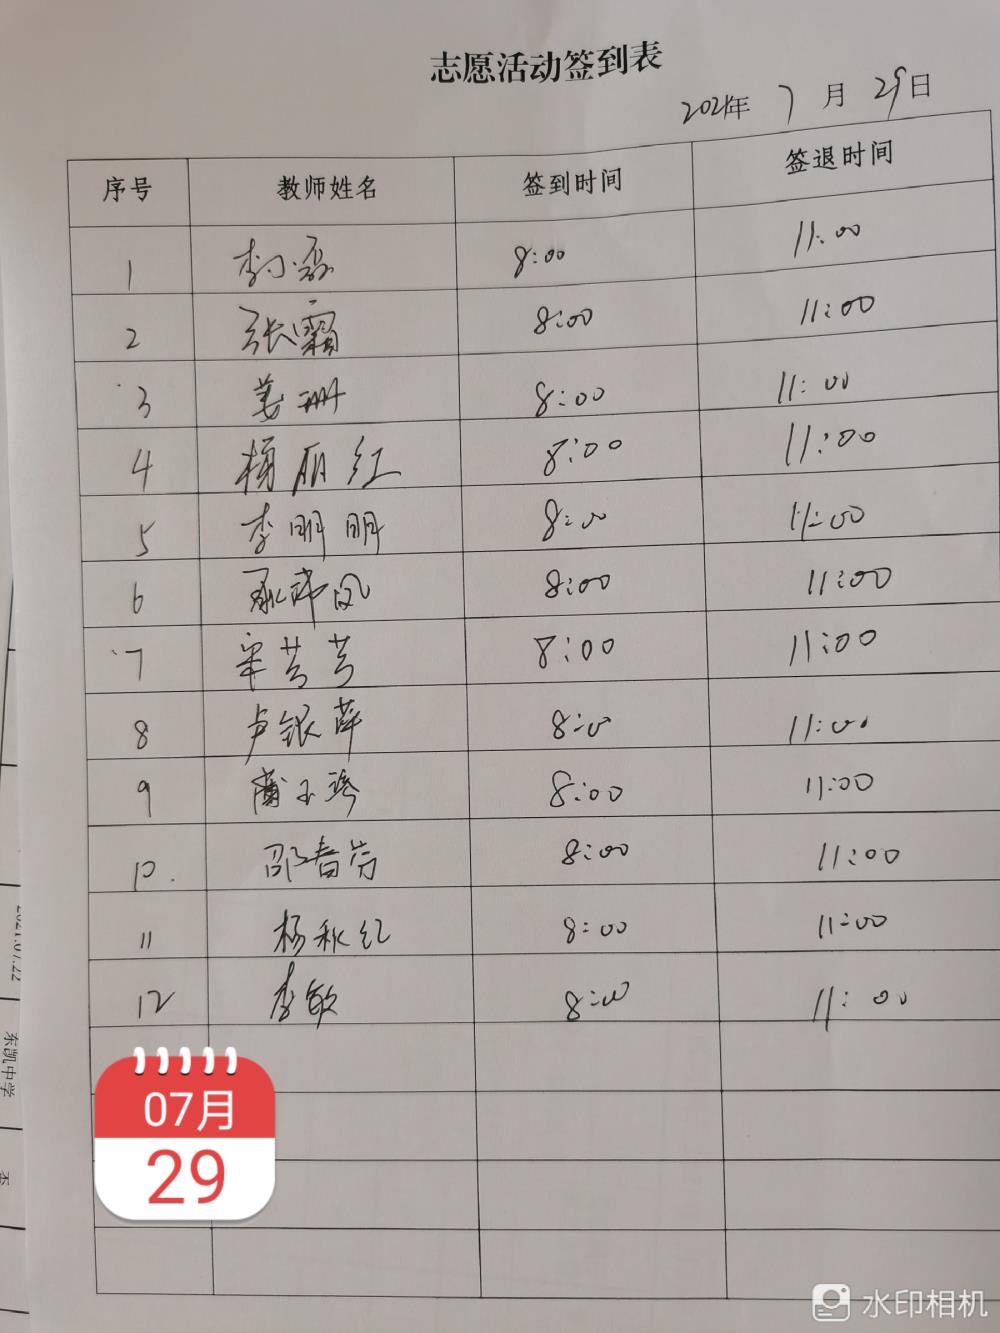 志愿活动签到表
2021年 7 月 29日
序号 教师姓名 签到时间 签退时间
1 李小磊 8:00 11:00
2 张霜 8:00 11:00
3 姜珊 8:00 11:00
4 杨丽红 8:00 11:00
5 李明明 8:00 11:00
6 凤 8:00 11:00
7 辛芸芸 8:00 11:00
8 卢银萍 8:00 11:00
9 蔺玉琴 8:00 11:00
10. 邵春芳 8:00 11:00
11 杨秋红 8:00 11:00
12 李敏 8:00 11:00
07月
29
2021.07.22
东凯中学
水印相机